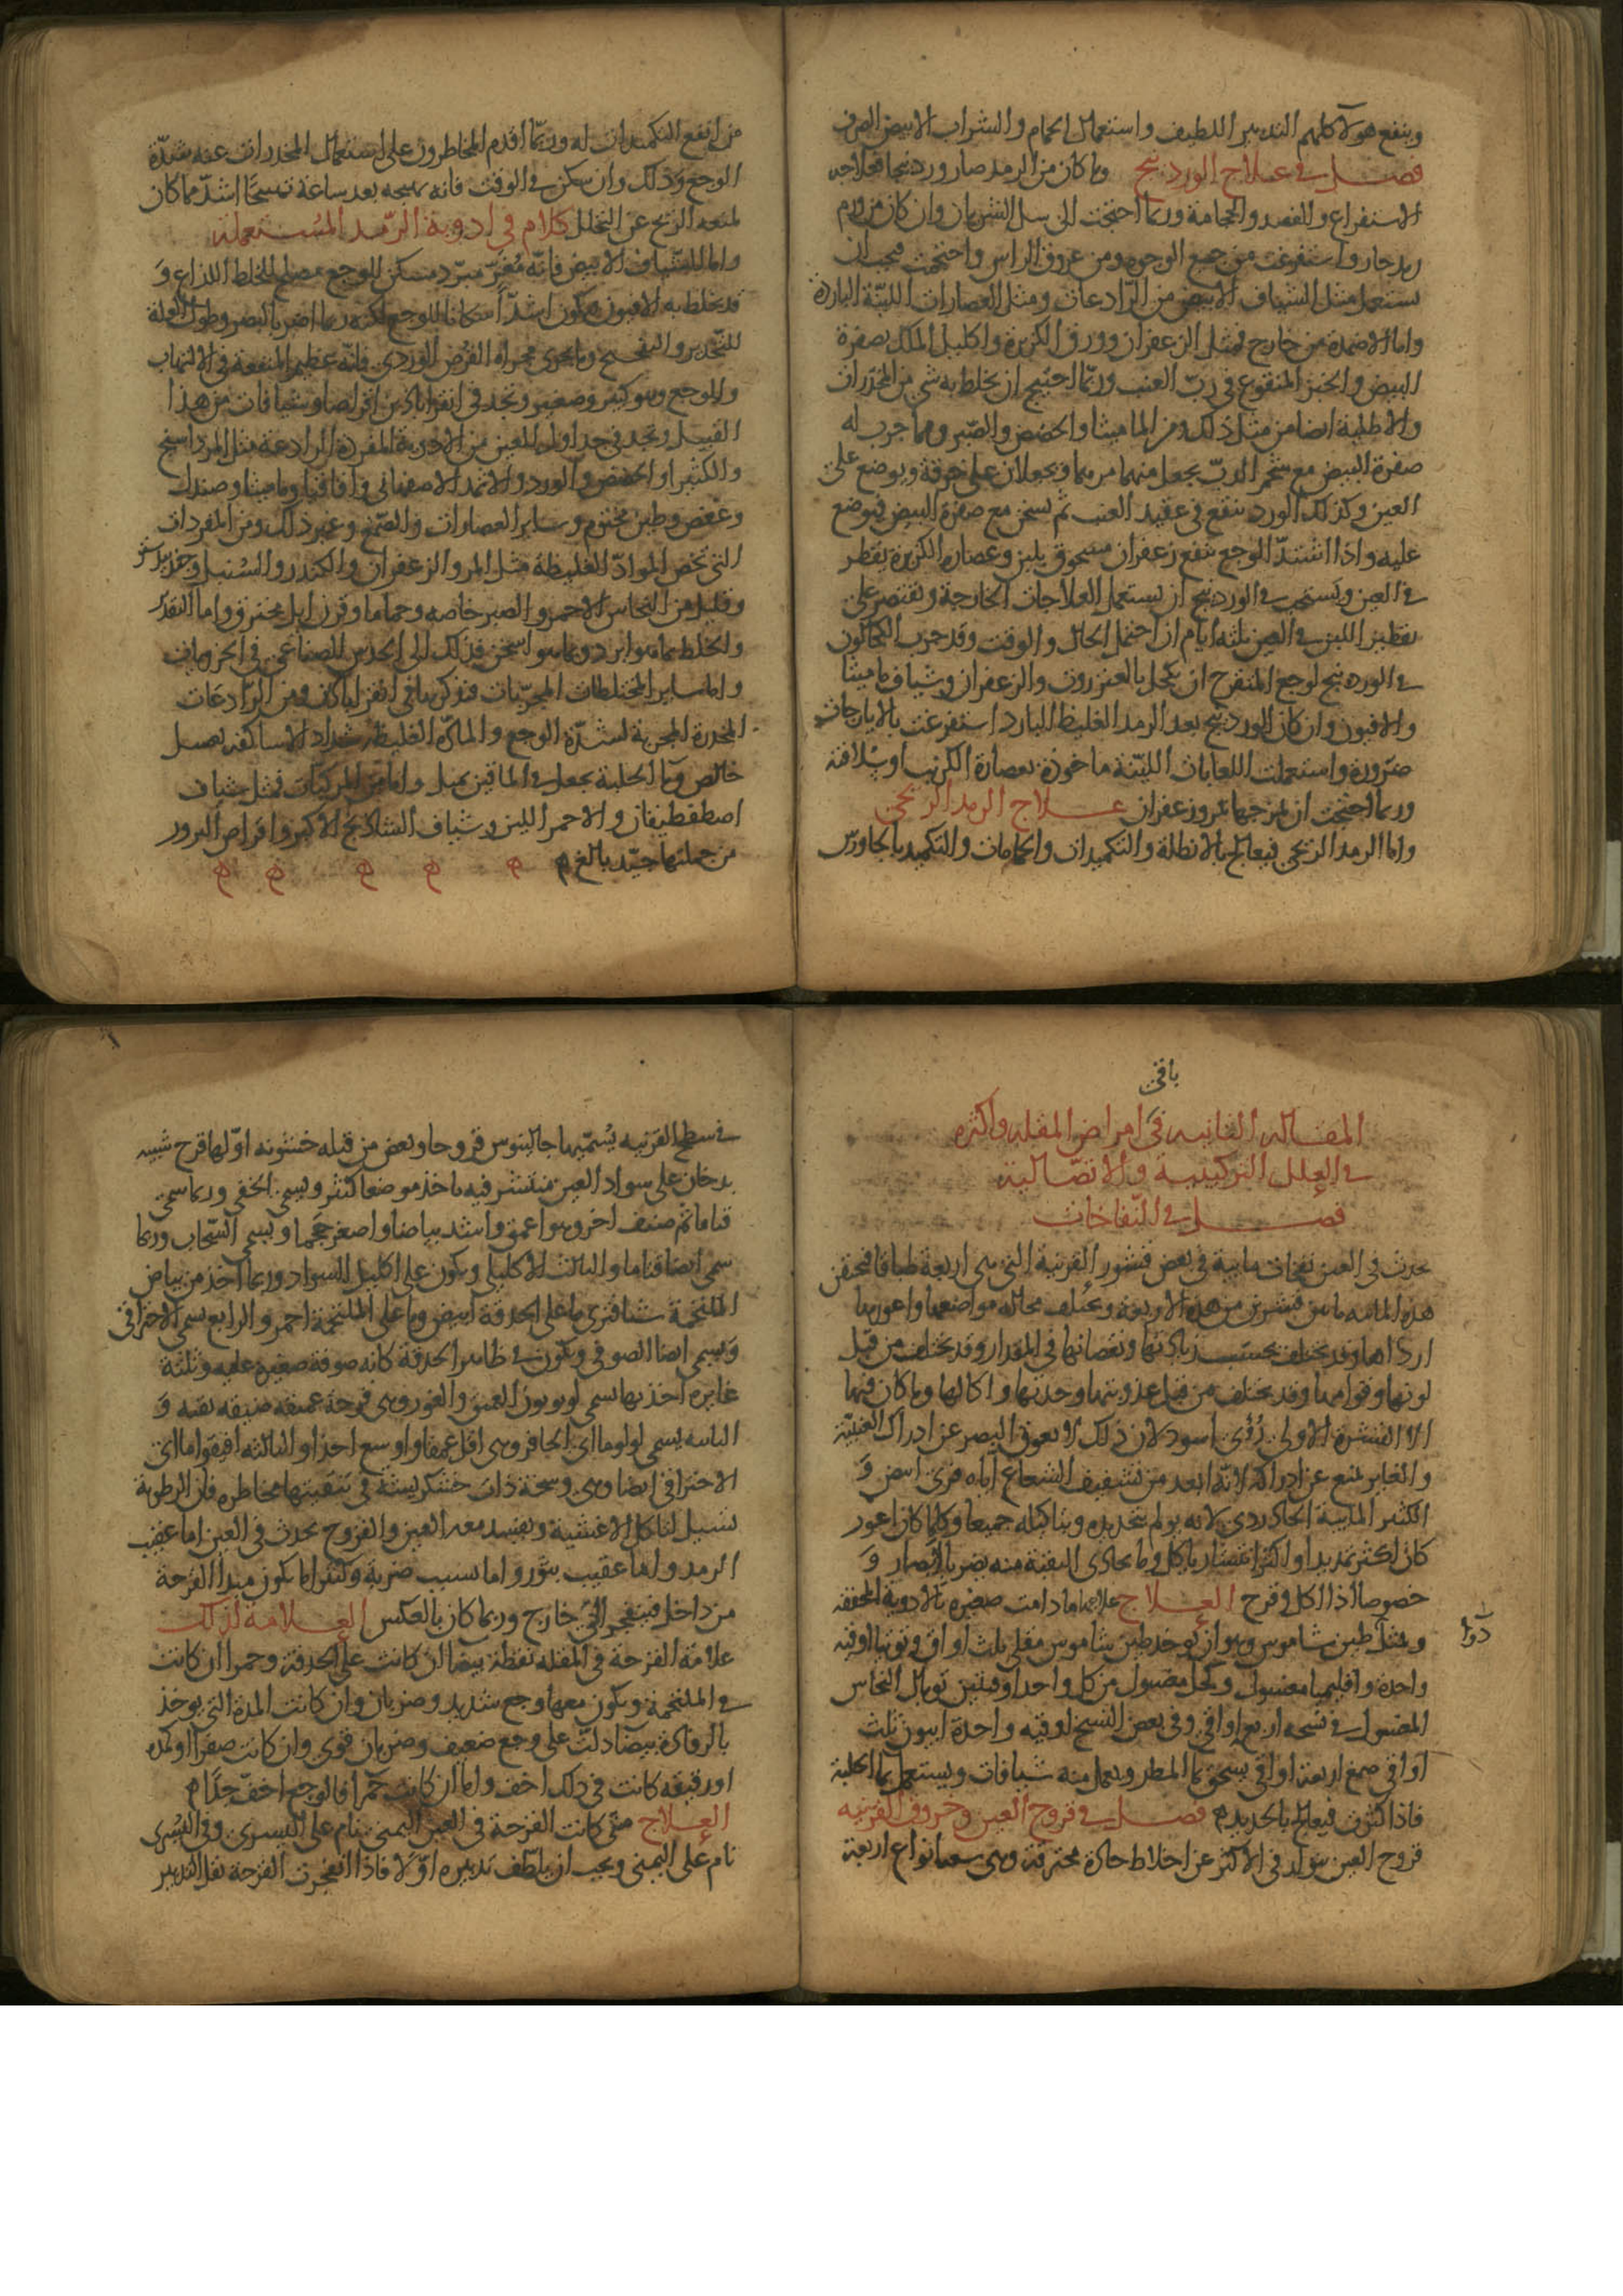 وينفع هولآ كلهم التدبير اللطيف واستعمال الحمام والشراب الابيض الصرف
فصل في علاج الوردينج وما كان من الرمد صار وردينجا فعلاجه
الاستفراغ والفصد والحجامة وربما احتجت الى سل الشريان وان كان من ورم
رمد حار واستفرغت من جميع الوجوه ومن عروق الراس واحتجمت فيجب ان
يستعمل مثل الشياف الابيض من الرّادعات ومثل العصارات الليّنة الباردة
واما الاضمدة من خارج فمثل الزعفران وورق الكزبرة واكليل الملك بصفرة
البيض والخبز المنقوع في ربّ العنب وربّما احتيج ان يخلط به شي من المخدرات
والاطلية ايضا من مثل ذلك ومن الماميثا والحضض والصّبر ومما جرب له
صفرة البيض مع شحم الدبّ يجعل منهما مرهما ويجعلان على خرقة ويوضع على
العين وكذلك الورد ينقع في عقيد العنب ثم يسخن مع صفرة البيض فيوضع
عليه واذا اشتدّ الوجع ينفع زعفران مسحوق بلبن وعصاره الكزبرة يقطر
في العين ويستحب في الوردينج ان يستعمل العلاجات الخارجة ويقتصر على
تقطير اللبن في العين ثلثه ايام ان احتمل الحال والوقت وقد جرب الكحالون
في الوردينج لوجع المتقرح ان يكحل بالعنزروت والزعفران وشياف ماميثا
والافيون وان كان الوردينج بعد الرمد الغليظ البارد استفرغت بالايارجات
ضرورة واستعملت اللعابات الليّنة ماخوذة بعصارة الكرنب او سلاقته
وربما احتجت ان تمزجها بمر وزعفران علاج الرمد الريحي
واما الرمد الريحي فيعالج بالانطلة والتكميدات والحمامات والتكميد بالجاورس
من انفع التكميدات له وربّما اقدم المخاطرون على استعمال المخدرات عند شدّة
الوجع وذلك وان سكن في الوقت فانه يهيجه بعد ساعة تهييجا اشدّ مما كان
لمنعه الريح عن التحلل كلام في ادوية الرّمد المستعملة
واما الشياف الابيض فانّه مُغَرّ مبرّد مسكن للوجع مصلح للخلط اللذاع وَ
قد يخلط به الافيون فيكون اشدّ اسكانا للوجع لكنه ربما اضر بالبصر وطول العلة
للتّخدير والتفجيج ومما يجرى مجراه القرص الوردي فانّه عظيم المنفعة في الالتهاب
والوجع وهو كبير وصغير وتجد في اقراباذين اقراصا وشيافات من هذا
القبيل وتجد في جداول العين من الادوية المفردة الرادعة مثل المرداسنج
والكثيرا والحضض والورد والاثمد الاصفهاني واقاقيا وماميثا وصندل
وعفص وطين مختوم وسائر العصارات والصّمغ وغير ذلك ومن المفردات
التي تخص المواد الغليظة مثل المر والزعفران والكندر والسنبل وجندبيدستر
وقليل من النحاس الاحمر والصبر خاصه وحماما وقرن ايل محترق واما التقدير
والخلط بما هو ابرد وبما هو اسخن فذلك الى الحدس الصناعي في الجزويات
واما ساير المختلطات المجربات فنذكرها في اقراباذين ومن الرّادعات
المخدرة المجربة لشدّة الوجع والمادّة الغليظة شداد الاساكفه بعسل
خالص وما الحلبة يجعل في الماقين بميل واما من المركبات فمثل شياف
اصطفطيقان والاحمر اللين وشياف الشاذنج الاكبر واقراص الورد
من جملتها جيّد بالغ م
باقى
المقاله الثانيه في امراض المقله واكثره
في العلل التركيبية والاتصالية
فصل في النفاخات
يحدث في العين نفاخات مايية في بعض قشور القرنية التي هي اربعة طباقا فيحتقن
هذه المائية ما بين قشرين من هذه الاربعة ويختلف محاله مواضعها واغورها
ارداها وقد يختلف بحسب زيادتها ونقصانها في المقدار وقد يختلف من قبل
لونها وقوامها وقد يختلف من قبل عذوبتها وحدتها واكالها وما كان منها
الا القشرة الاولى رُؤى اسود لان ذلك لا يعوق البصر عن ادراك العنبيّة
والغاير يمنع عن ادراكه لانّه ابعد من تشفيف الشعاع اياه فيرى ابيض وَ
الكثير المايية الحاد ردي لانه يولم بتمديده وبتاكيله جميعا وكلما كان اغور
كان اكثر تمديدا واكثر انتشارا باكل وما يحاذى الثقبة منه يضر بالابصار وَ
خصوصا اذا اكل وقرح العلاج علاجها ما دامت صغيره بالادوية المجففة
ومثل طين شاموس وهو ان يوخذ طين شاموس مقلى ثلث اواق وتوتيا اوقيه
واحدة واقليميا مغسول وكحل مغسول من كل واحد اوقيتين توبال النحاس
المغسول في نسخه اربع اواقي وفي بعض النسخ اوقيه واحدة افيون ثلث
اواقي صمغ اربعة اواقي يسحق بما المطر ويعمل منه شيافات ويستعمل بما الحلبة
فاذا كثرت فيعالج بالحديد م فصل في قروح العين وخروق القرنيه
قروح العين يتولد في الاكثر عن اخلاط حادة محترقة وهي سبعة انواع اربعة
دوا
في سطح القرنيه يُسمّيها جالينوس قروحا وبعض من قبله خشونه اوّلها قرح شبيه
بدخان على سواد العين منتشر فيه ياخذ موضعا كثيرا ويسمى الخفي وربما سمى
قتاما ثم صنف اخر وهو اعمق واشد بياضا واصغر حجما ويسمى السّحاب وربما
سمى ايضا قتاما والثالث الاكليلي ويكون على اكليل السواد وربما اخذ من بياض
الملتحمة شيا فترى ما على الحدقة ابيض وما على الملتحمة احمر والرابع يسمى الاحتراقي
وَيسمى ايضا الصوفي ويكون في ظاهر الحدقة كانه صوفة صغيره عليه وثلثة
غايره احدىها يسمى لوبويون العميق والغور وهي قرحة عميقه ضيقه نقيه وَ
الثانيه يسمى لولوما اى الحافر وهي اقل عمقا واوسع اخذا والثالثه افيقوما اى
الاحتراقي ايضا وهي وسخة ذات خشكريشة في تنقيتها مخاطره فان الرطوبة
تسيل لتاكل الاغشية ويفسد معه العين والقروح تحدث في العين اما عقيب
الرمد واما عقيب بثور واما بسبب ضربة وكثيرا ما يكون مبدا القرحة
من داخل فينفجر الى خارج وربما كان بالعكس العلامة لذلك
علامة القرحة في المقله نقطة بيضا ان كانت على الحدقة وحمرا ان كانت
في الملتحمة ويكون معها وجع شديد وضربان وان كانت المدة التي يوخذ
بالرفادة بيضا دلّت على وجع ضعيف وضربان قوي وان كانت صفرا او كمده
او رقيقه كانت في ذلك اخف واما ان كانت حمرا فالوجع اخفّ جدّا م
العلاج متى كانت القرحة في العين اليمنى ينام على اليسرى وفي اليُسْرى
نام على اليمنى ويجب ان يلطّف تدبيره اوّلا فاذا انفجرت القرحة نقل التدبير